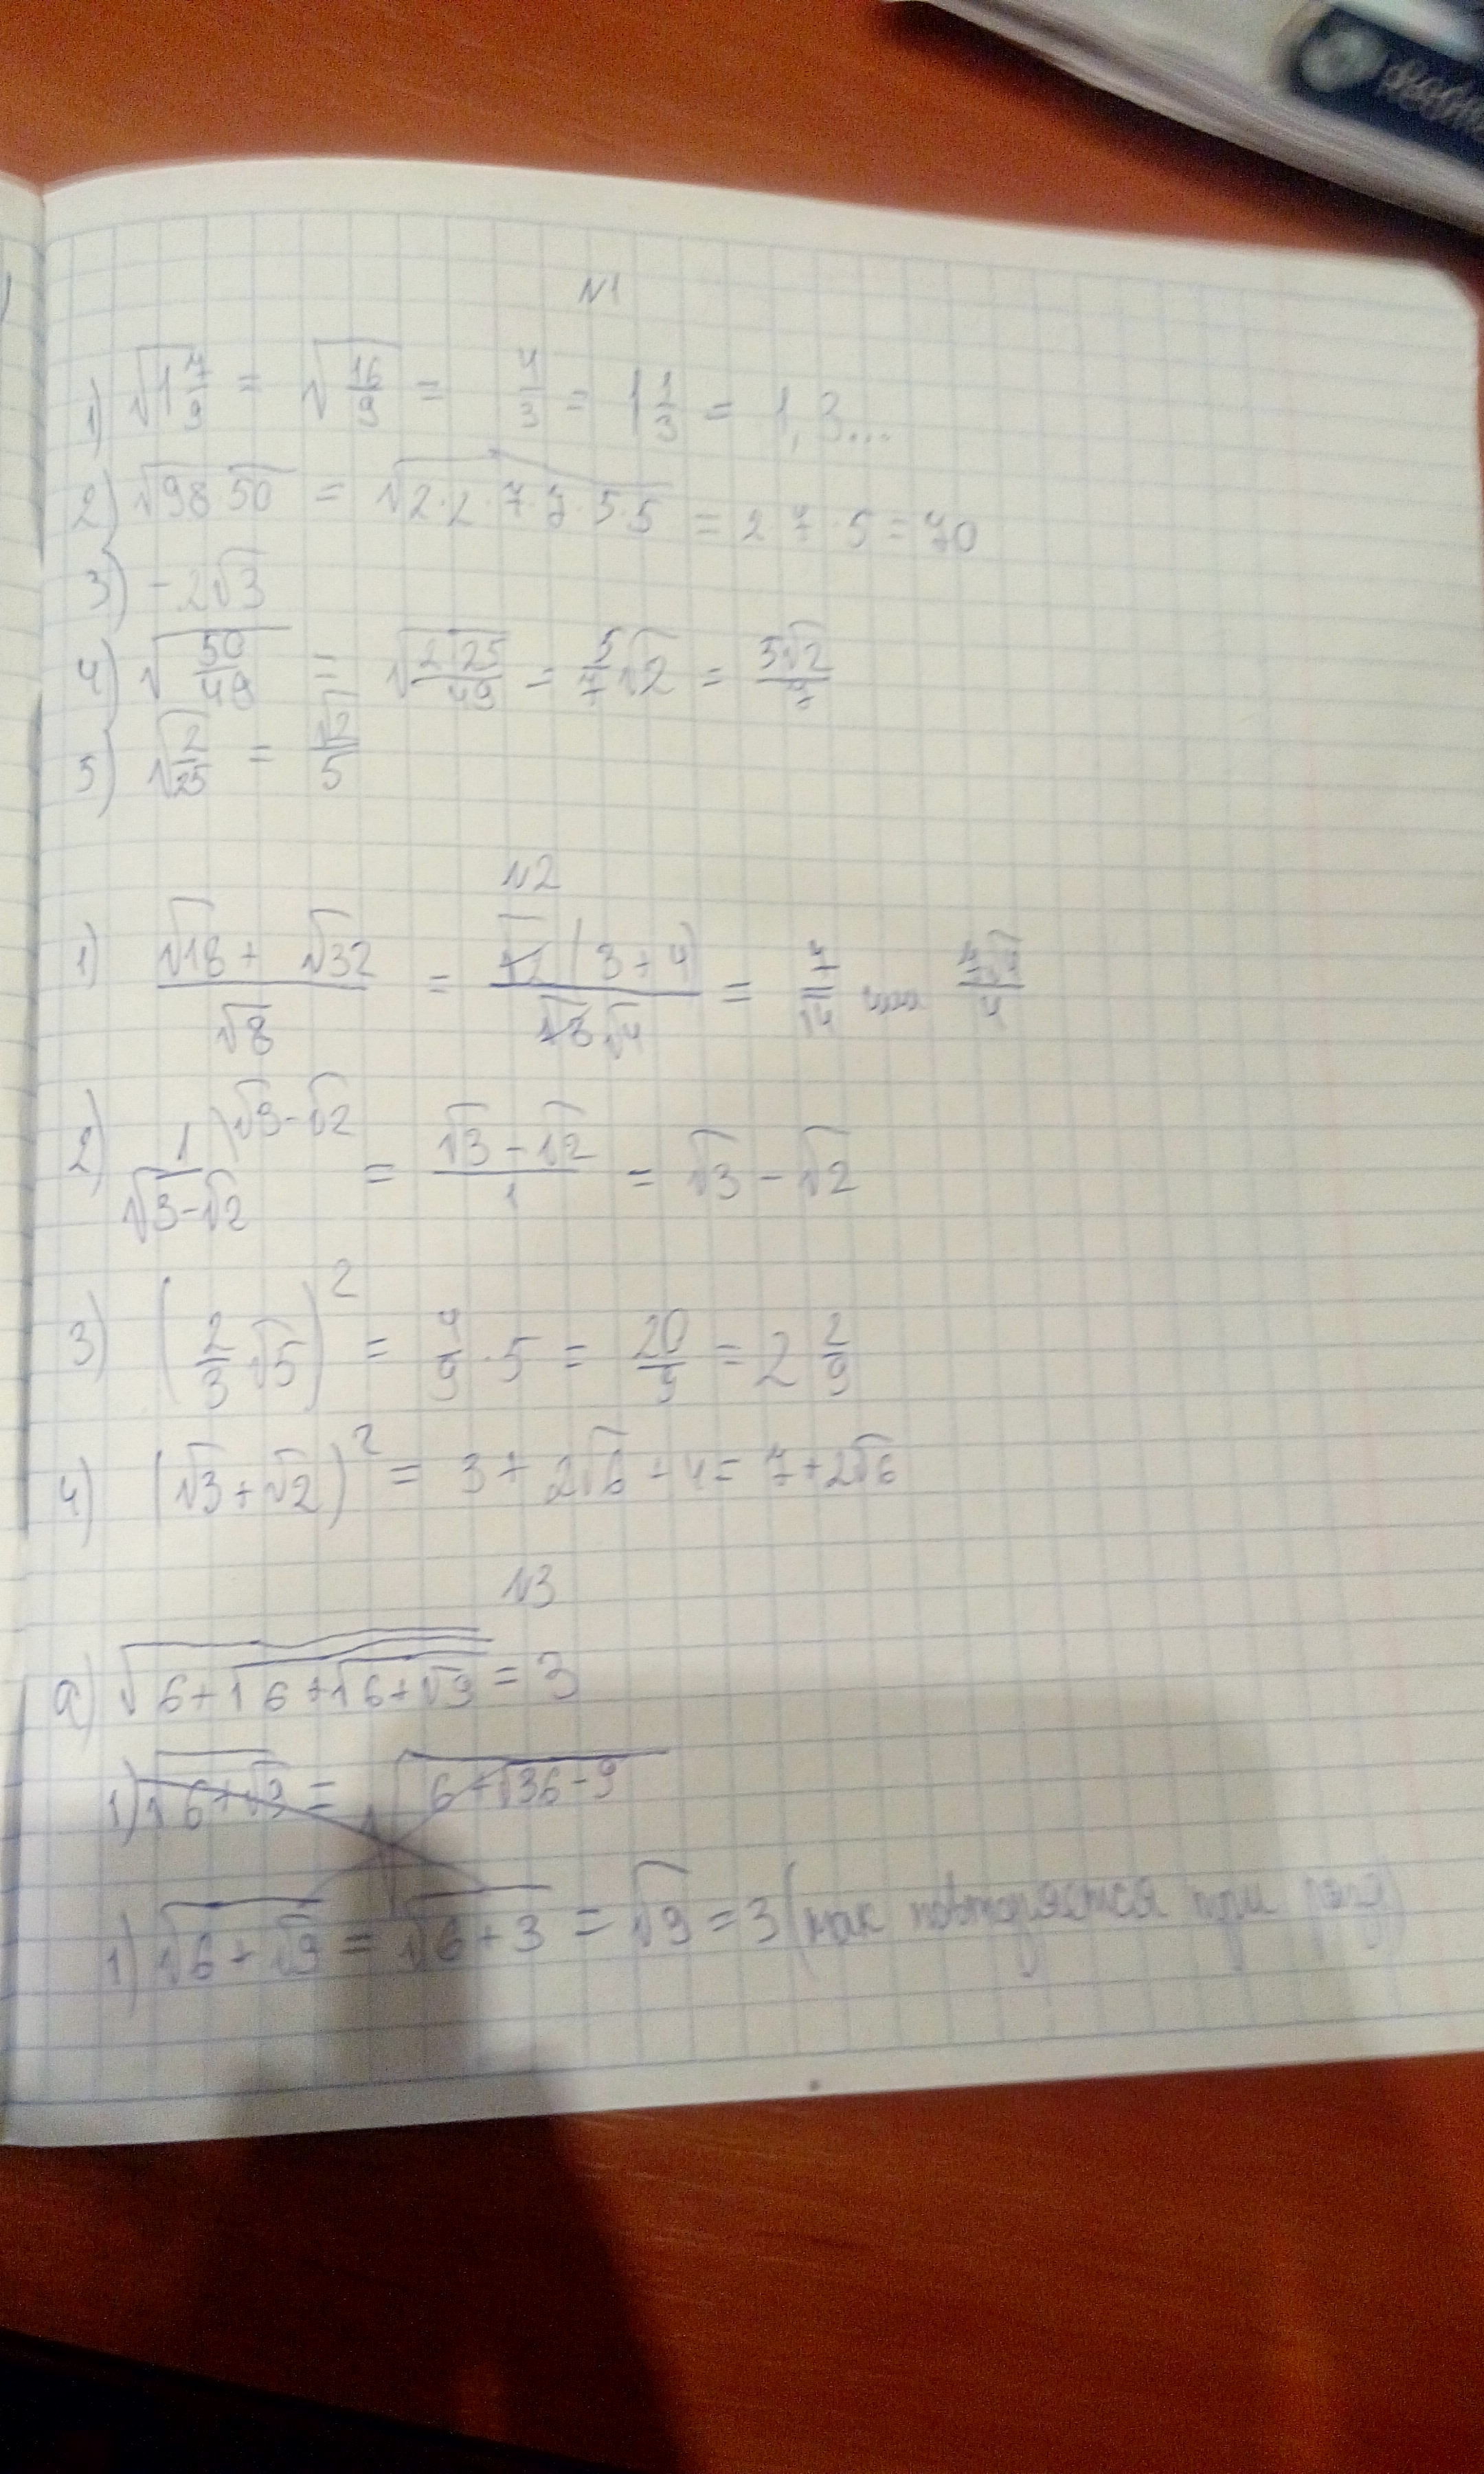 N1
1) √1 7/9 = √16/9 = 4/3 = 1 1/3 = 1,3...
2) √98 50 = √2·2·7·7·5·5 = 2 7·5 = 70
3) -2√3
4) √50/49 = √2 25/49 = 5/7 √2 = 5√2/7
5) √2/25 = √2/5
N2
1) (√18 + √32)/√8 = √2(3+4)/√4 = 7/√4 или
2) 1/(√3-√2) \√3-√2 = (√3-√2)/1 = √3 - √2
3) (2/3 √5)² = 4/9 · 5 = 20/9 = 2 2/9
4) (√3+√2)² = 3 + 2√6 + 4 = 7+2√6
N3
а) √6+√6+√6+√9 = 3
1) √6+√9 = √6+√36-9
1) √6+√9 = √6+3 = √9 = 3 (так повторяется три раза)